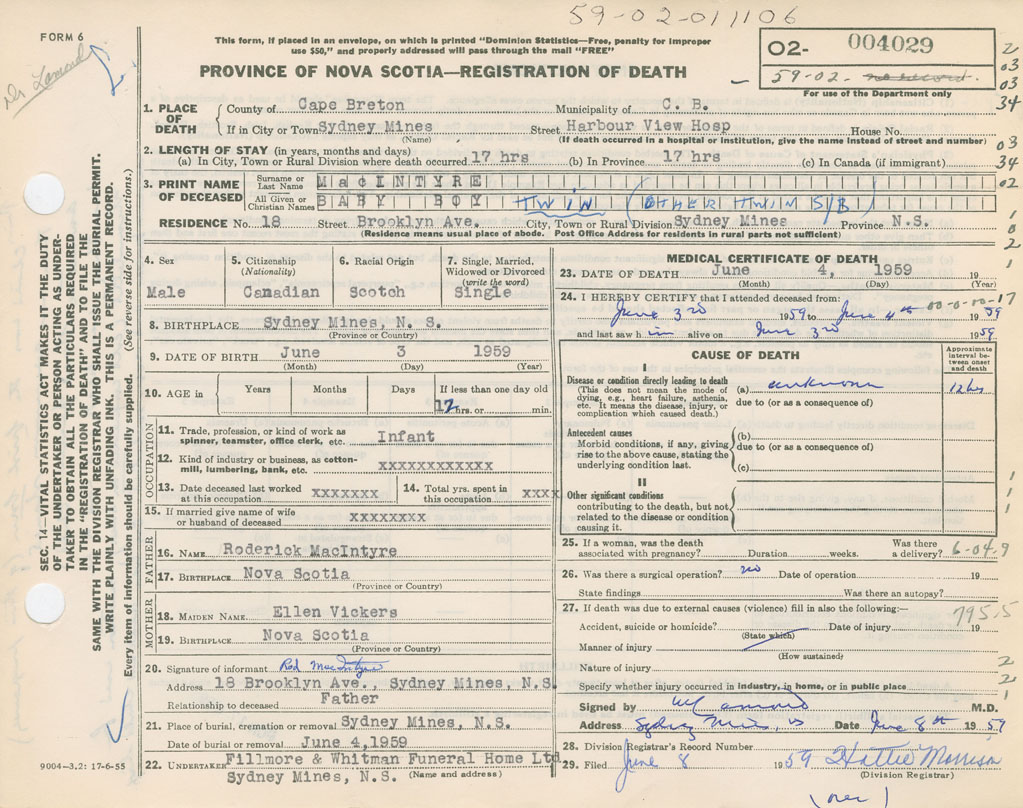 59-02-011106
FORM 6
Dr Lamond
This form, if placed in an envelope, on which is printed "Dominion Statistics—Free, penalty for improper
use $50," and properly addressed will pass through the mail "FREE"
PROVINCE OF NOVA SCOTIA—REGISTRATION OF DEATH
02- 004029
59-02- no record.
For use of the Department only
2
03
03
34
03
34
02
1
0
2
1
SEC. 14—VITAL STATISTICS ACT MAKES IT THE DUTY
OF THE UNDERTAKER OR PERSON ACTING AS UNDER-
TAKER TO OBTAIN ALL THE PARTICULARS REQUIRED
IN THE "REGISTRATION OF DEATH" AND TO FILE THE
SAME WITH THE DIVISION REGISTRAR WHO SHALL ISSUE THE BURIAL PERMIT.
WRITE PLAINLY WITH UNFADING INK. THIS IS A PERMANENT RECORD.
Every item of information should be carefully supplied. (See reverse side for instructions.)
1. PLACE OF DEATH
County of Cape Breton Municipality of C. B.
If in City or Town Sydney Mines Street Harbour View Hosp House No.
(Name) (If death occurred in a hospital or institution, give the name instead of street and number)
2. LENGTH OF STAY (in years, months and days)
(a) In City, Town or Rural Division where death occurred 17 hrs (b) In Province 17 hrs (c) In Canada (if immigrant)
3. PRINT NAME OF DECEASED
Surname or Last Name MacINTYRE
All Given or Christian Names BABY BOY TWIN (OTHER TWIN S/B)
RESIDENCE No. 18 Street Brooklyn Ave. City, Town or Rural Division Sydney Mines Province N.S.
(Residence means usual place of abode. Post Office Address for residents in rural parts not sufficient)
4. Sex
Male
5. Citizenship
(Nationality)
Canadian
6. Racial Origin
Scotch
7. Single, Married,
Widowed or Divorced
(write the word)
Single
8. BIRTHPLACE Sydney Mines, N. S.
(Province or Country)
9. DATE OF BIRTH June 3 1959
(Month) (Day) (Year)
10. AGE in Years Months Days If less than one day old
hrs. or min.
OCCUPATION
11. Trade, profession, or kind of work as
spinner, teamster, office clerk, etc. Infant
12. Kind of industry or business, as cotton-
mill, lumbering, bank, etc. xxxxxxxxxxxx
13. Date deceased last worked
at this occupation xxxxxxx
14. Total yrs. spent in
this occupation xxxx
15. If married give name of wife
or husband of deceased xxxxxxxx
FATHER
16. NAME Roderick MacIntyre
17. BIRTHPLACE Nova Scotia
(Province or Country)
MOTHER
18. MAIDEN NAME Ellen Vickers
19. BIRTHPLACE Nova Scotia
(Province or Country)
20. Signature of informant Rod MacIntyre
Address 18 Brooklyn Ave., Sydney Mines, N.S.
Relationship to deceased Father
21. Place of burial, cremation or removal Sydney Mines, N.S.
Date of burial or removal June 4,1959
22. UNDERTAKER Fillmore & Whitman Funeral Home Ltd
Sydney Mines, N.S. (Name and address)
9004-3.2: 17-6-55
MEDICAL CERTIFICATE OF DEATH
23. DATE OF DEATH June 4, 1959 19
(Month) (Day) (Year)
24. I HEREBY CERTIFY that I attended deceased from: 00-0-00-17
June 3rd 1959 to June 4th 1959
and last saw him alive on June 3rd 1959
CAUSE OF DEATH
Approximate
interval be-
tween onset
and death
I
Disease or condition directly leading to death
(This does not mean the mode of
dying, e.g., heart failure, asthenia,
etc. It means the disease, injury, or
complication which caused death.)
(a) unknown 12 hrs
due to (or as a consequence of)
Antecedent causes
Morbid conditions, if any, giving
rise to the above cause, stating the
underlying condition last.
(b)
due to (or as a consequence of)
(c)
II
Other significant conditions
contributing to the death, but not
related to the disease or condition
causing it.
1
1
1
25. If a woman, was the death
associated with pregnancy? Duration weeks. Was there
a delivery? 6-04.9
26. Was there a surgical operation? no Date of operation 19
State findings Was there an autopsy?
27. If death was due to external causes (violence) fill in also the following:—
795.5
Accident, suicide or homicide? Date of injury 19
(State which)
Manner of injury
(How sustained)
Nature of injury
2
2
1
Specify whether injury occurred in industry, in home, or in public place
Signed by Lamond M.D.
Address Sydney Mines Date June 8th 1959
28. Division Registrar's Record Number
29. Filed June 8 1959 Hattie Morrison
(Division Registrar)
(over)